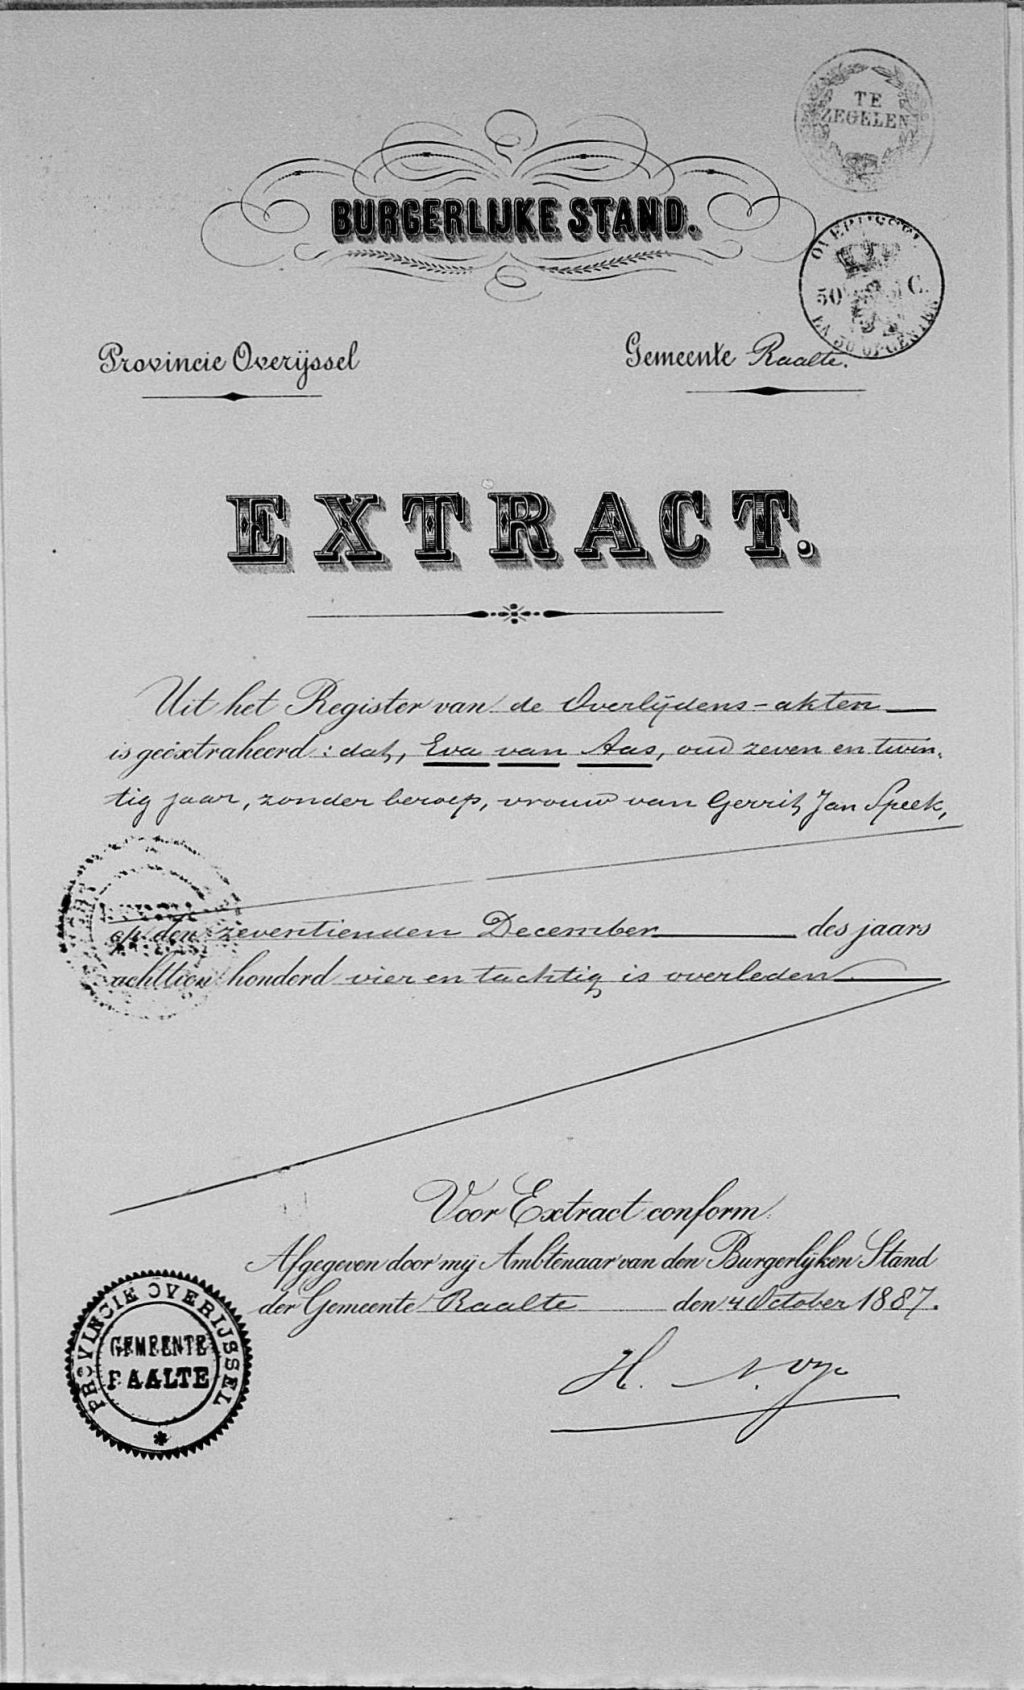 TE
ZEGELEN
BURGERLIJKE STAND.
50 C.
Provincie Overijssel
Gemeente Raalte.
EXTRACT.
Uit het Register van de Overlijdens-akten
is geëxtraheerd: dat, Eva van Aas, oud zeven en twin-
tig jaar, zonder beroep, vrouw van Gerrit Jan Speek,
op den zeventienden December des jaars
achttien honderd vier en tachtig is overleden
Voor Extract conform.
Afgegeven door mij Ambtenaar van den Burgerlijken Stand
der Gemeente Raalte den 4 October 1887.
H.
PROVINCIE OVERIJSSEL
GEMEENTE
RAALTE